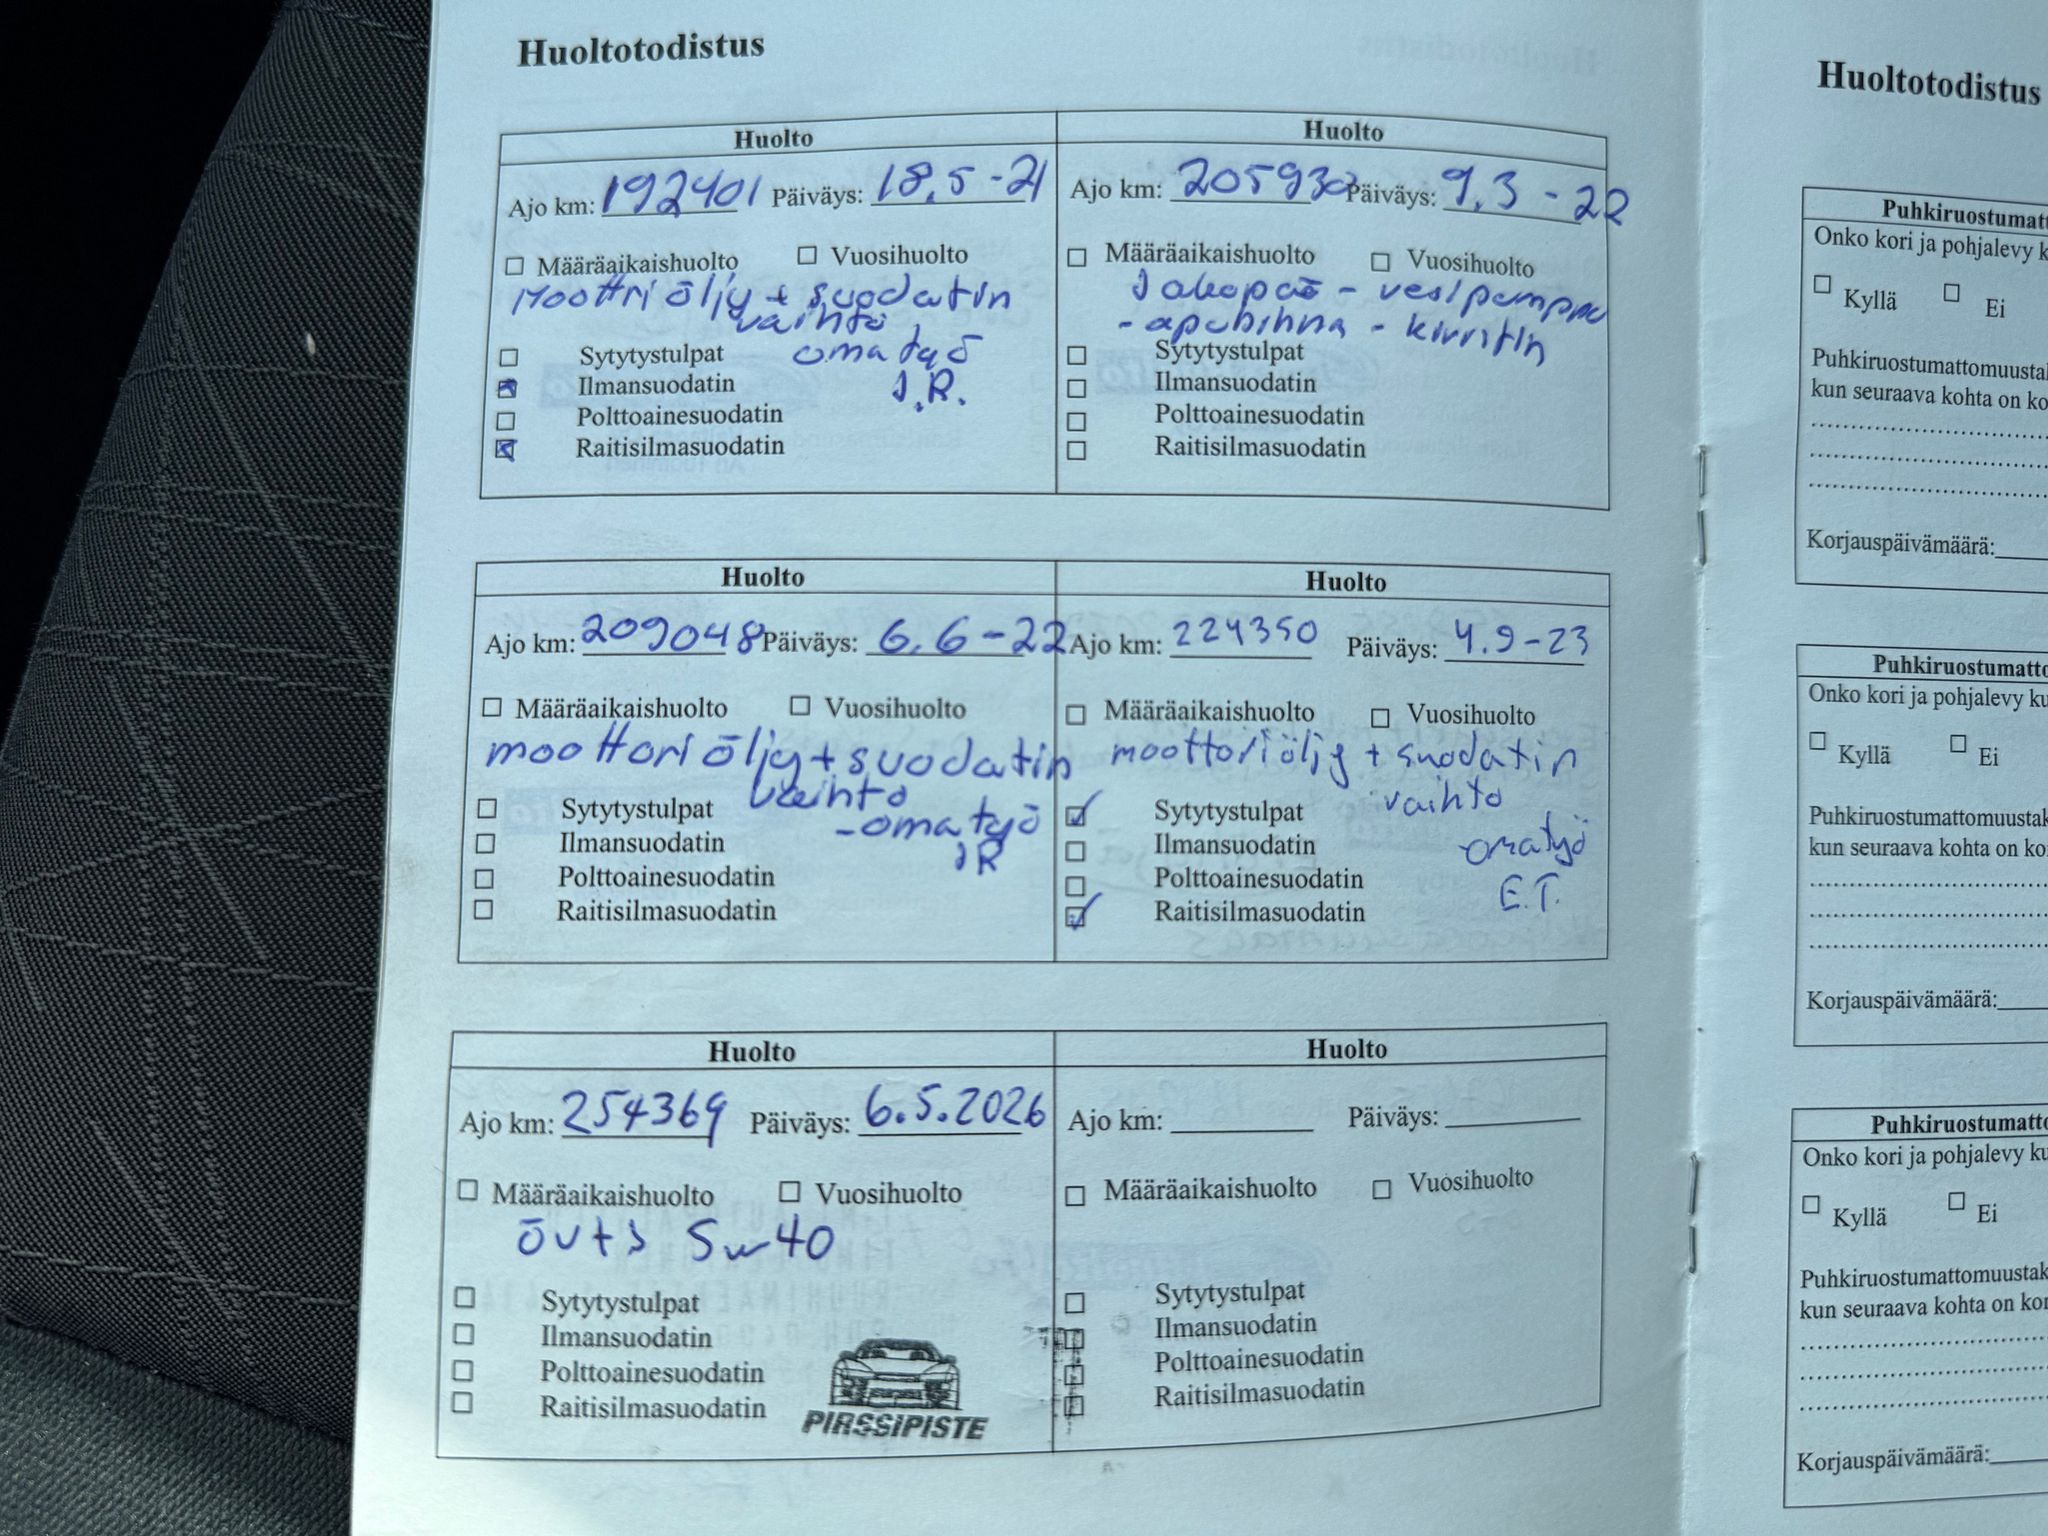 Huoltotodistus
Huolto
Ajo km: 192401 Päiväys: 18.5-21
Määräaikaishuolto Vuosihuolto
Moottri öljy + suodatin
vaihto
Sytytystulpat omatyö
Ilmansuodatin J.R.
Polttoainesuodatin
Raitisilmasuodatin
Huolto
Ajo km: 205930 Päiväys: 9.3-22
Määräaikaishuolto Vuosihuolto
Jakopää - vesipumppu
- apuhihna - kiristin
Sytytystulpat
Ilmansuodatin
Polttoainesuodatin
Raitisilmasuodatin
Huolto
Ajo km: 209048 Päiväys: 6.6-22
Määräaikaishuolto Vuosihuolto
moottori öljy + suodatin
vaihto
Sytytystulpat
-omatyö
Ilmansuodatin JR
Polttoainesuodatin
Raitisilmasuodatin
Huolto
Ajo km: 224350 Päiväys: 4.9-23
Määräaikaishuolto Vuosihuolto
moottoriöljy + suodatin
vaihto
Sytytystulpat
Ilmansuodatin omatyö
Polttoainesuodatin E.T.
Raitisilmasuodatin
Huolto
Ajo km: 254369 Päiväys: 6.5.2026
Määräaikaishuolto Vuosihuolto
5w40
Sytytystulpat
Ilmansuodatin
Polttoainesuodatin
Raitisilmasuodatin
PIRSSIPISTE
Huolto
Ajo km: Päiväys:
Määräaikaishuolto Vuosihuolto
Sytytystulpat
Ilmansuodatin
Polttoainesuodatin
Raitisilmasuodatin
Huoltotodistus
Puhkiruostumatt
Onko kori ja pohjalevy k
Kyllä Ei
Puhkiruostumattomuustak
kun seuraava kohta on ko
Korjauspäivämäärä:
Puhkiruostumatto
Onko kori ja pohjalevy ku
Kyllä Ei
Puhkiruostumattomuustak
kun seuraava kohta on ko
Korjauspäivämäärä:
Puhkiruostumatto
Onko kori ja pohjalevy ku
Kyllä Ei
Puhkiruostumattomuustak
kun seuraava kohta on kor
Korjauspäivämäärä: